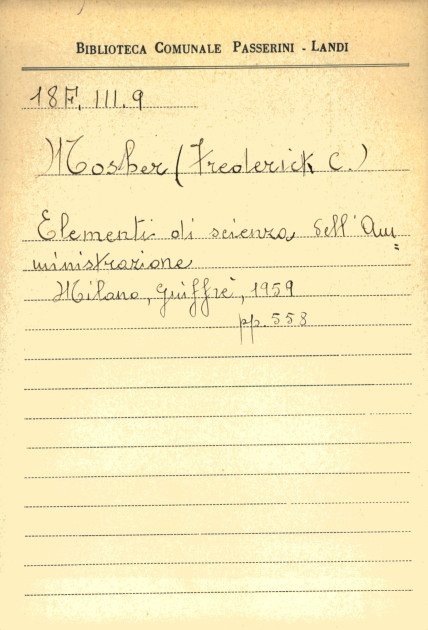 BIBLIOTECA COMUNALE PASSERINI - LANDI
18F. III. 9
Mosher (Frederick C.)
Elementi di scienza dell'Am=
ministrazione
Milano, Giuffrè, 1959
pp. 558